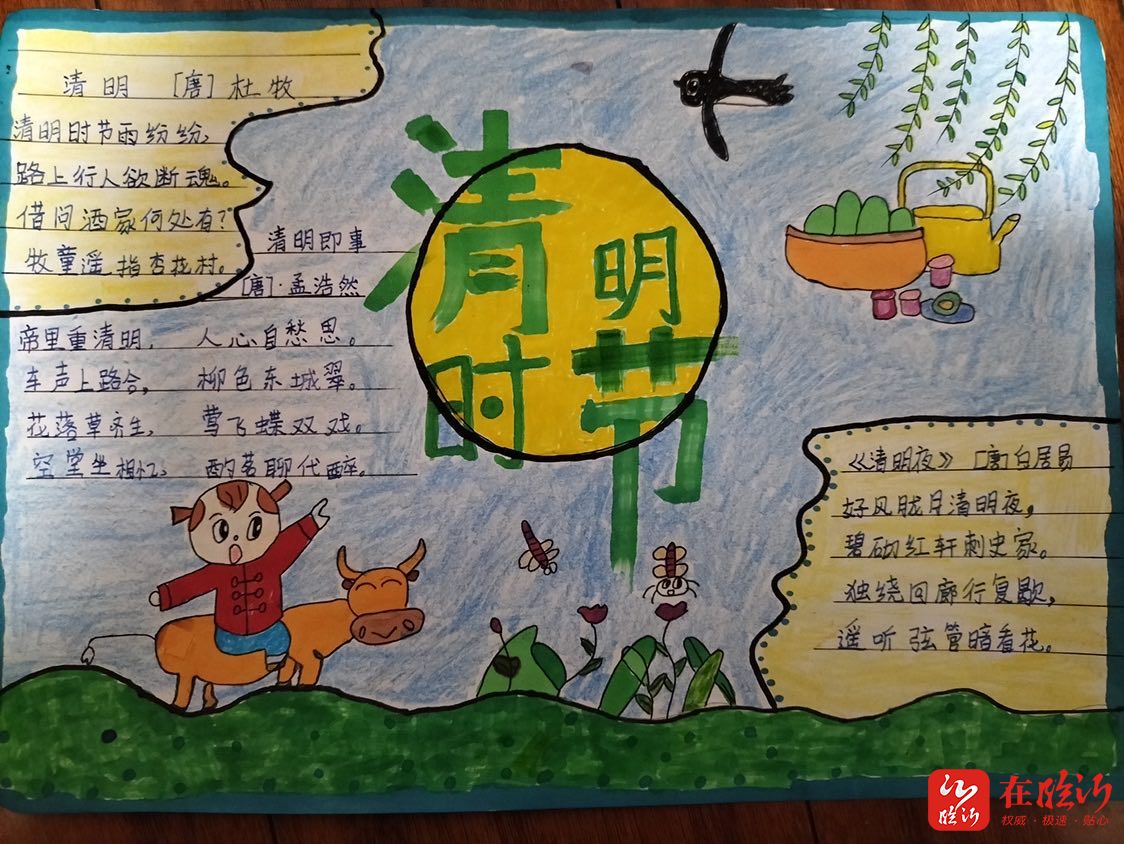 清明 [唐]杜牧
清明时节雨纷纷,
路上行人欲断魂。
借问酒家何处有?
牧童遥指杏花村。
清明即事
[唐]·孟浩然
帝里重清明, 人心自愁思。
车声上路合, 柳色东城翠。
花落草齐生, 莺飞蝶双戏。
空堂坐相忆, 酌茗聊代醉。
清明
时节
《清明夜》 [唐]白居易
好风胧月清明夜,
碧砌红轩刺史家。
独绕回廊行复歇,
遥听弦管暗看花。
临沂
在临沂
权威·极速·贴心